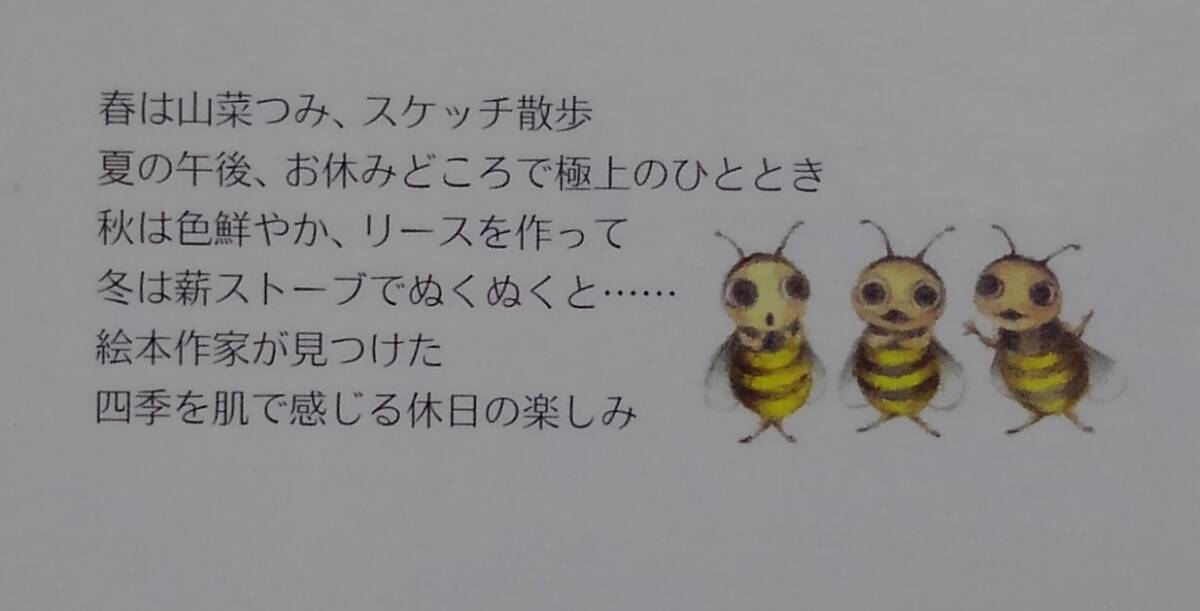 春は山菜つみ、スケッチ散歩
夏の午後、お休みどころで極上のひととき
秋は色鮮やか、リースを作って
冬は薪ストーブでぬくぬくと……
絵本作家が見つけた
四季を肌で感じる休日の楽しみ